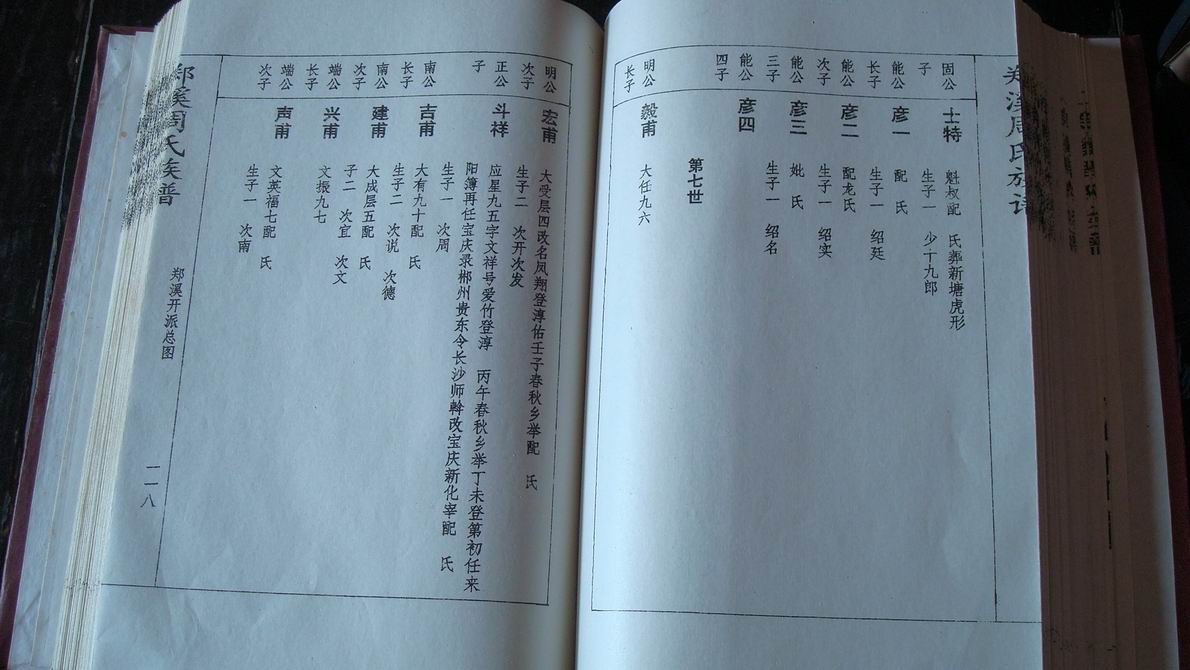 郑溪周氏族谱
固公
子
士特
魁叔配 氏葬新塘虎形
生子一 少十九郎
能公
长子
彦一
配 氏
生子一 绍廷
能公
次子
彦二
配龙氏
生子一 绍实
能公
三子
彦三
妣 氏
生子一 绍名
能公
四子
彦四
第七世
明公
长子
毅甫
大任九六
明公
次子
宏甫
大受层四改名凤翔登淳佑壬子春秋乡举配 氏
生子二 次开次发
正公
子
斗祥
应星九五字文祥号爱竹登淳 丙午春秋乡举丁未登第初任来
阳簿再任宝庆录郴州贵东令长沙师斡改宝庆新化宰配 氏
生子一 次周
南公
长子
吉甫
大有九十配 氏
生子二 次说 次德
南公
次子
建甫
大成层五配 氏
子二 次宜 次文
端公
长子
兴甫
文振九七
端公
次子
声甫
文英福七配 氏
生子一 次南
郑溪周氏族谱
郑溪开派总图
一一八